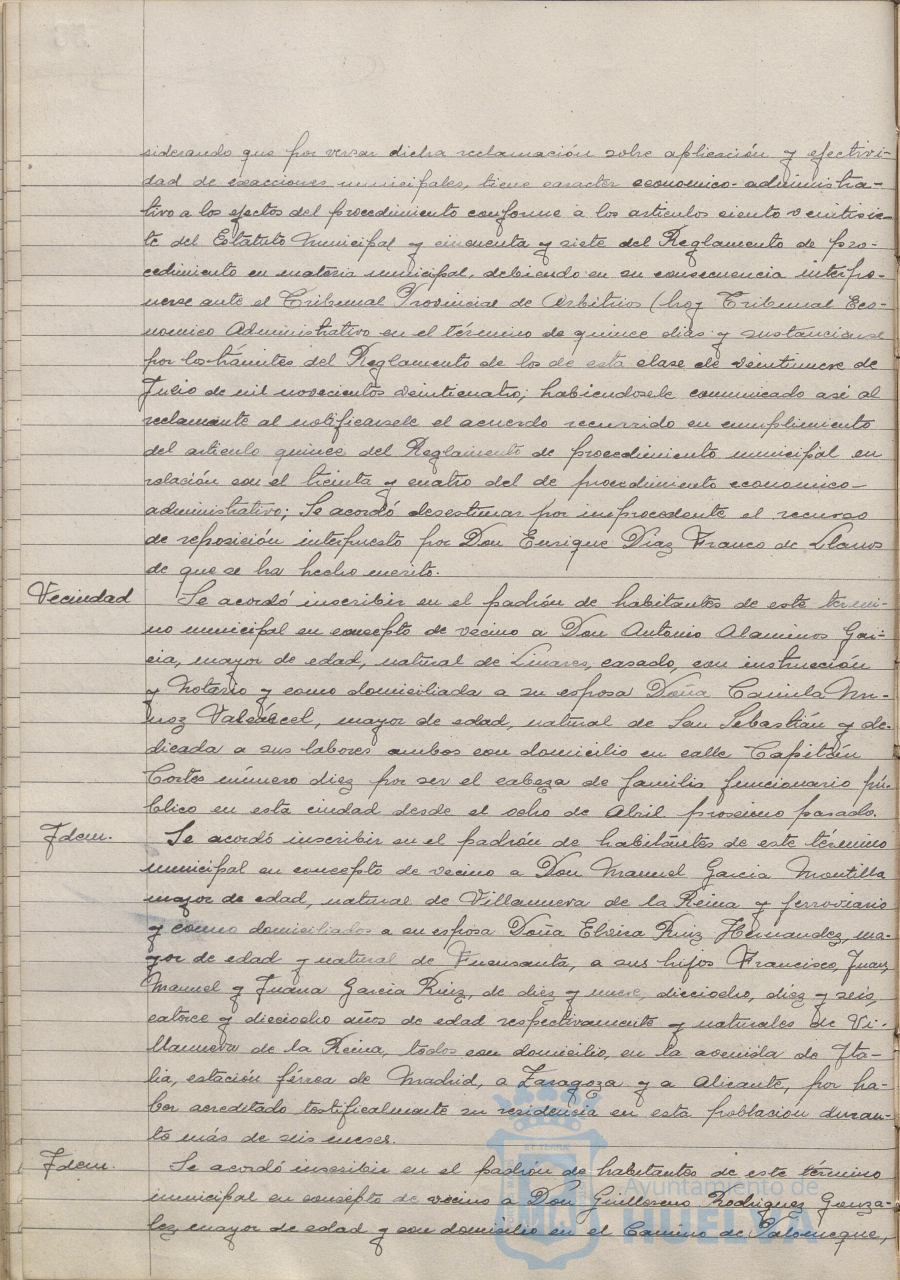 siderando que por versar dicha reclamación sobre aplicación y efectivi-
dad de exacciones municipales, tiene caracter economico-administra-
tivo a los efectos del procedimiento conforme a los articulos ciento veintisie-
te del Estatuto Municipal y cincuenta y siete del Reglamento de pro-
cedimiento en materia municipal, debiendo en su consecuencia interpo-
nerse ante el Tribunal Provincial de Arbitrios (hoy Tribunal Eco-
nomico Administrativo en el término de quince dias y sustanciarse
por los trámites del Reglamento de los de esta clase de veintinueve de
Julio de mil novecientos veinticuatro; habiendosele comunicado asi al
reclamante al notificarsele el acuerdo recurrido en cumplimiento
del articulo quince del Reglamento de procedimiento municipal en
relación con el treinta y cuatro del de procedimiento economico-
administrativo; Se acordó desestimar por improcedente el recurso
de reposición interpuesto por Don Enrique Diaz Franco de Llanos
de que se ha hecho merito.
Vecindad Se acordó inscribir en el padrón de habitantes de este termi-
no municipal en concepto de vecino a Don Antonio Alaminos Gar-
cia, mayor de edad, natural de Linares, casado, con instrucción
y Notario y como domiciliada a su esposa Doña Camila Mu-
ñoz Valcárcel, mayor de edad, natural de San Sebastián y de-
dicada a sus labores ambos con domicilio en calle Capitán
Cortés número diez por ser el cabeza de familia funcionario pú-
blico en esta ciudad desde el ocho de Abril proximo pasado.
Idem. Se acordó inscribir en el padrón de habitantes de este término
municipal en concepto de vecino a Don Manuel Garcia Montilla
mayor de edad, natural de Villanueva de la Reina y ferroviario
y como domiciliados a su esposa Doña Elvira Ruiz Hernandez, ma-
yor de edad y natural de Fuensanta, a sus hijos Francisco, Juan,
Manuel y Juana Garcia Ruiz, de diez y nueve, dieciocho, diez y seis,
catorce y dieciocho años de edad respectivamente y naturales de Vi-
llanueva de la Reina, todos con domicilio, en la avenida de Ita-
lia, estación férrea de Madrid, a Zaragoza y a Alicante, por ha-
ber acreditado testificalmente su residencia en esta poblacion duran-
te más de seis meses.
Idem. Se acordó inscribir en el padrón de habitantes de este término
municipal en concepto de vecino a Don Guillermo Rodriguez Gonza-
lez mayor de edad y con domicilio en el Camino de Palomeque,
Ayuntamiento de
HUELVA